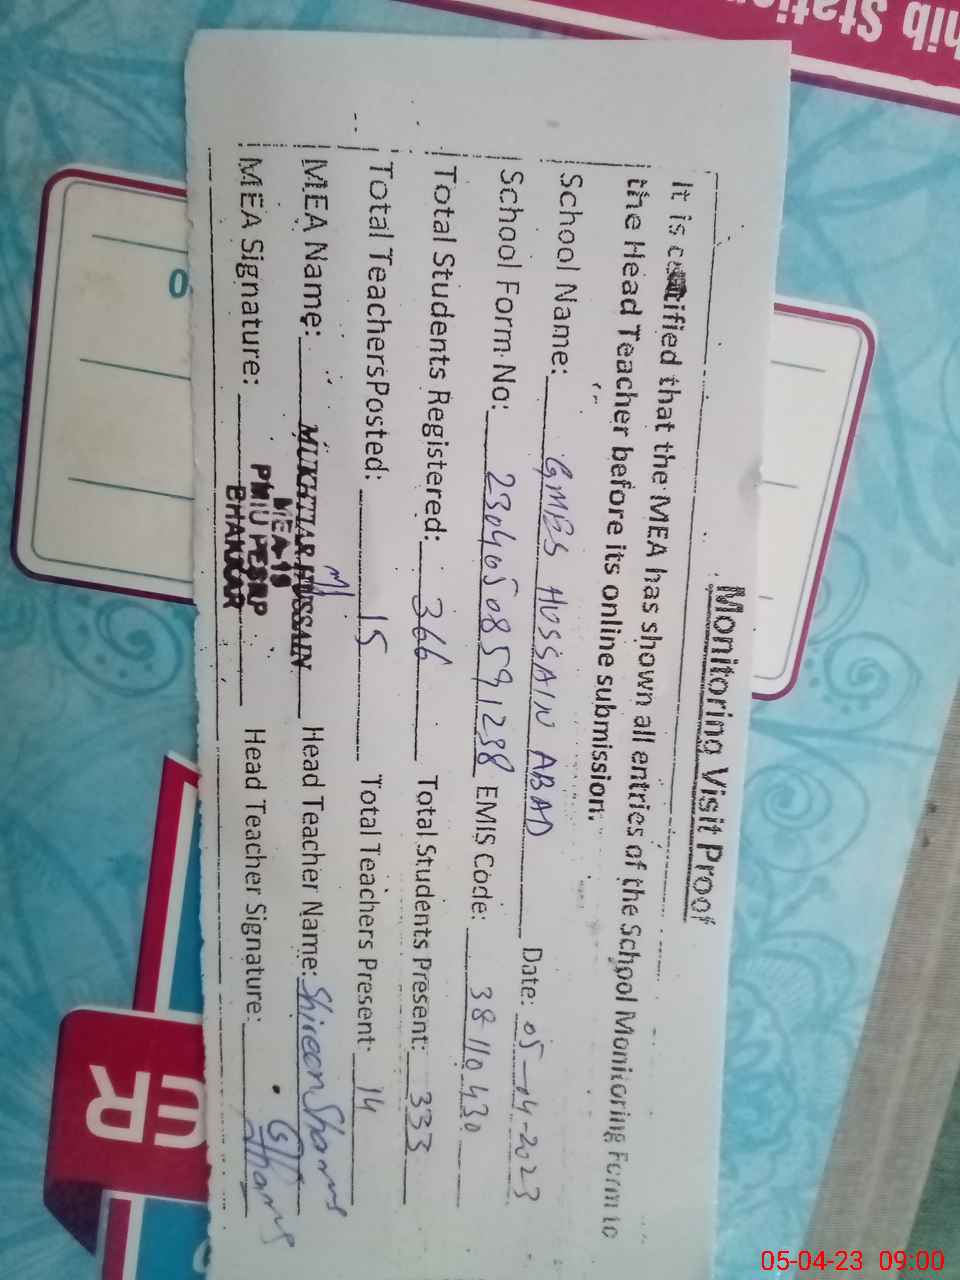 Monitoring Visit Proof
It is certified that the MEA has shown all entries of the School Monitoring Form to
the Head Teacher before its online submission.
School Name: GMES HUSSAIN ABAD Date: 05-04-2023
School Form No: 23040508591288 EMIS Code: 38110430
Total Students Registered: 366 Total Students Present: 333
Total Teachers Posted: 15 Total Teachers Present: 14
MEA Name: MUKHTIAR HUSSAIN Head Teacher Name: Shireen Shams
MEA-19
MEA Signature: PMIU PESRP Head Teacher Signature: Shams
BHAKKAR
hib Statio
ER
05-04-23 09:00